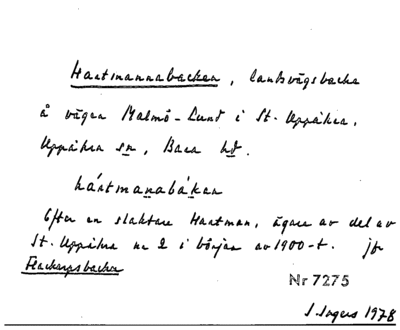 Hartmannabacken, landsvägsbacke
å vägen Malmö-Lund i St. Uppåkra,
Uppåkra sn, Bara hd.
hártmanabákan
Efter en slaktare Hartman, ägare av del av
St. Uppåkra nr 2 i början av 1900-t. jfr
Flackarpsbacken
Nr 7275
S Ingers 1978